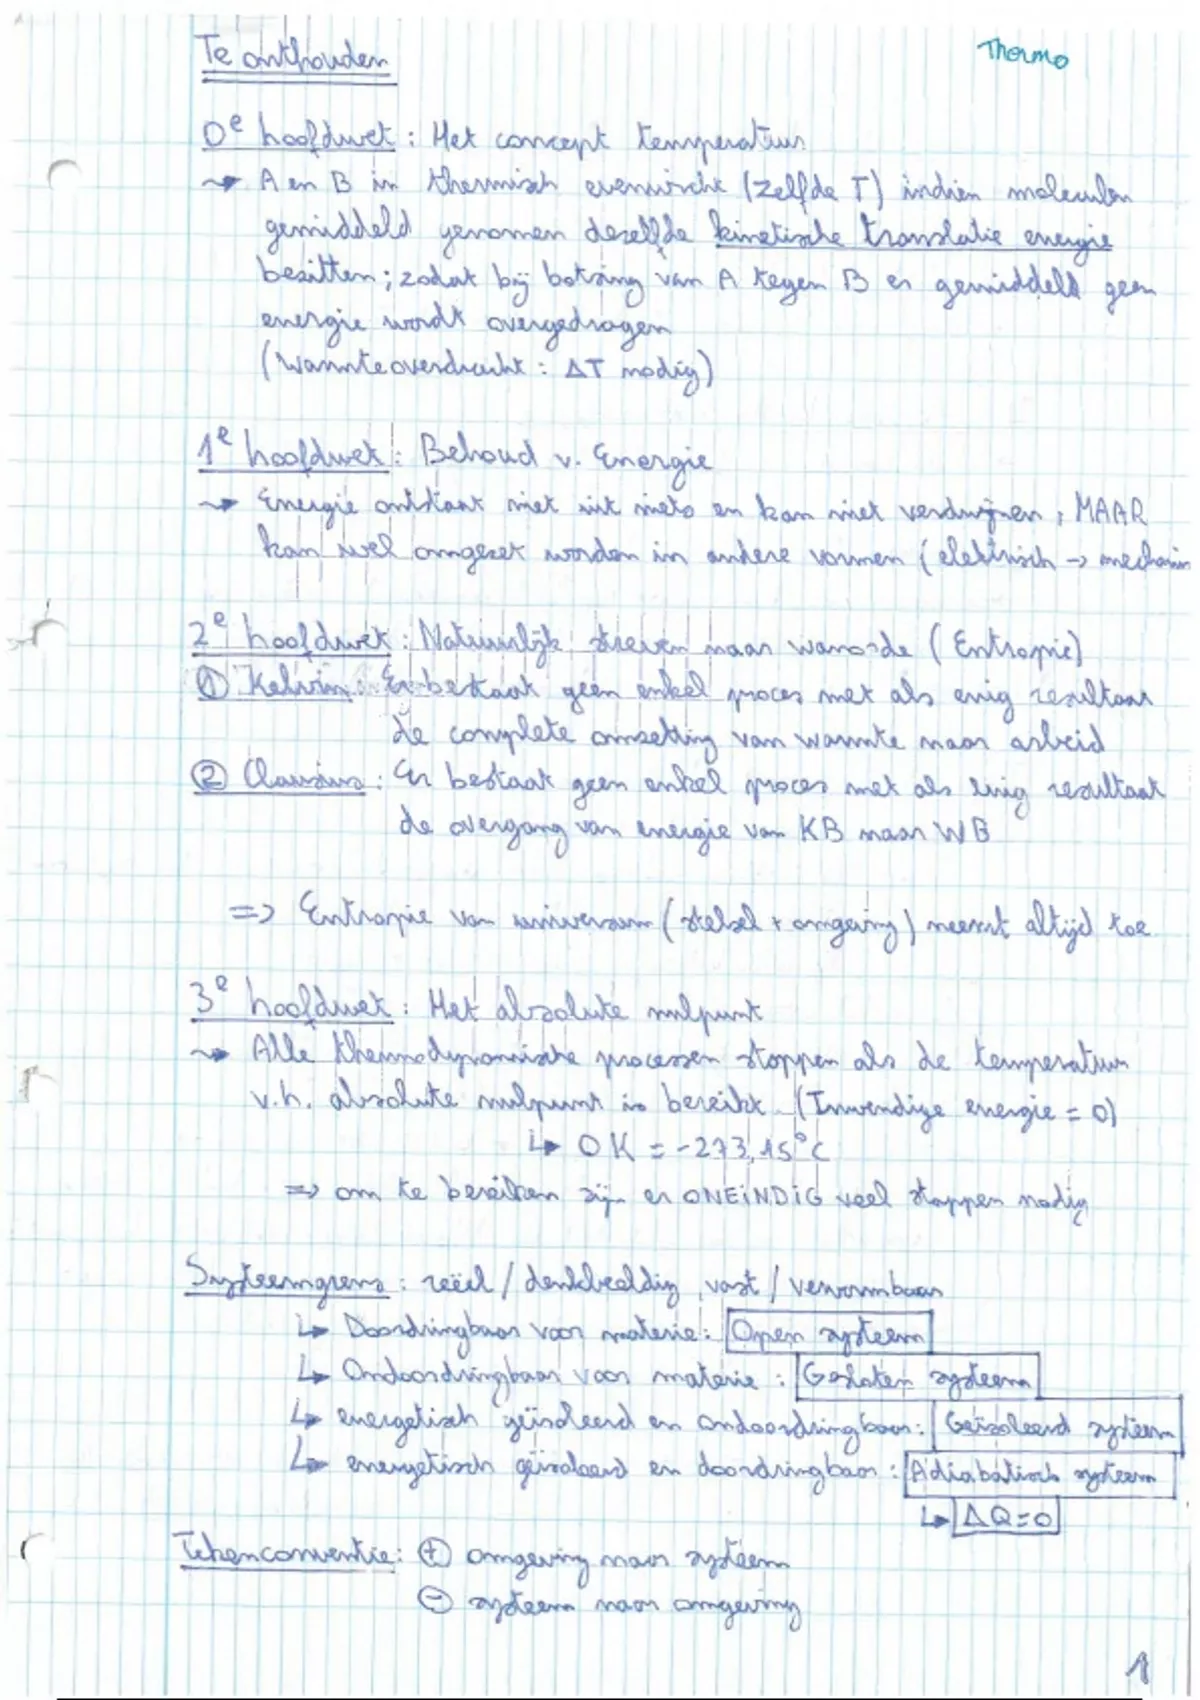 Te onthouden
Thermo
0e hoofdwet : Het concept temperatuur
A en B in thermisch evenwicht (zelfde T) indien moleculen
gemiddeld genomen dezelfde kinetische translatie energie
bezitten ; zodat bij botsing van A tegen B er gemiddeld geen
energie wordt overgedragen
(Warmteoverdracht : ΔT nodig)
1e hoofdwet : Behoud v. Energie
Energie ontstaat niet uit niets en kan niet verdwijnen, MAAR
kan wel omgezet worden in andere vormen (elektrisch →
2e hoofdwet : Natuurlijk streven naar wanorde (Entropie)
① Kelvin : Er bestaat geen enkel proces met als enig resultaat
de complete omzetting van warmte naar arbeid
② Clausius : Er bestaat geen enkel proces met als enig resultaat
de overgang van energie van KB naar WB
=> Entropie van universum (stelsel + omgeving) neemt altijd toe
3e hoofdwet : Het absolute nulpunt
Alle thermodynamische processen stoppen als de temperatuur
v.h. absolute nulpunt is bereikt (Inwendige energie = 0)
↳ 0 K = -273,15°C
=> om te bereiken zijn er ONEiNDiG veel stappen nodig
Systeemgrens : reëel / denkbeeldig, vast / vervormbaar
↳ Doordringbaar voor materie : Open systeem
↳ Ondoordringbaar voor materie : Gesloten systeem
↳ energetisch geïsoleerd en ondoordringbaar : Geïsoleerd systeem
↳ energetisch geïsoleerd en doordringbaar : Adiabatisch systeem
↳ ΔQ=0
Tekenconventie : ⊕ omgeving naar systeem
⊖ systeem naar omgeving
1